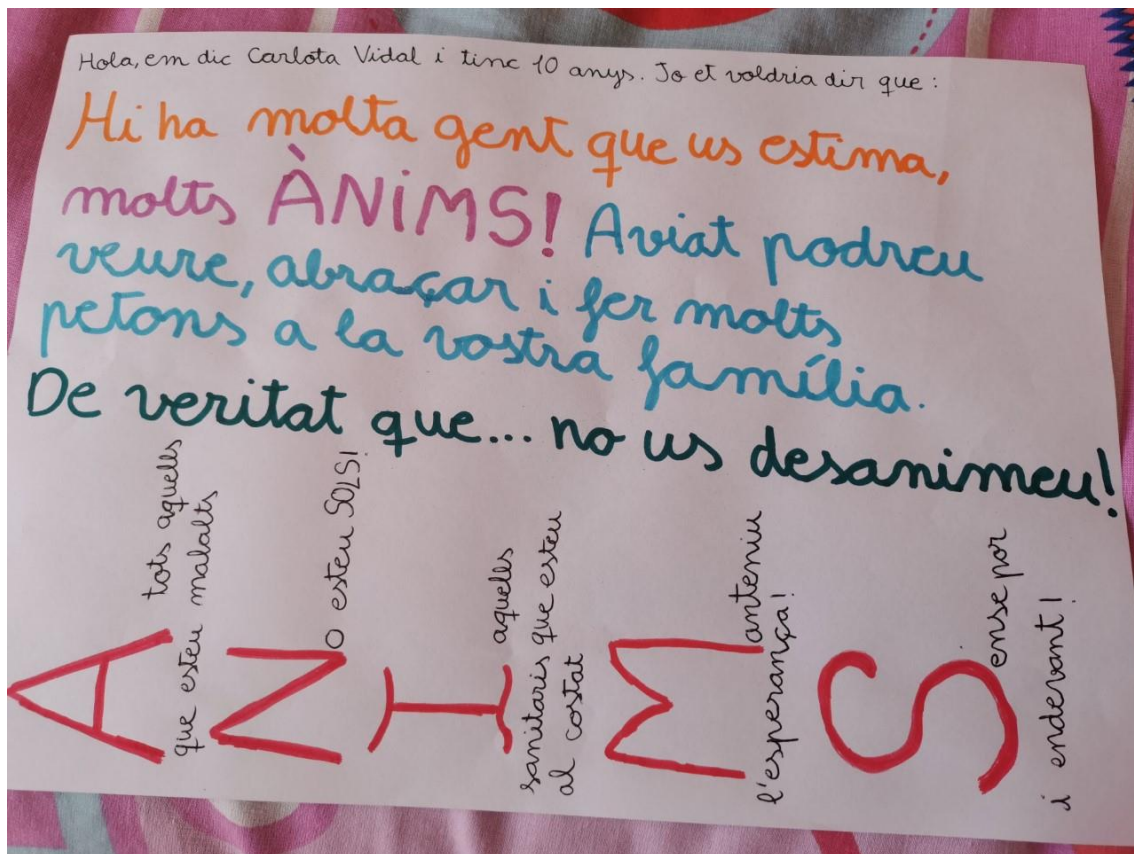 Hola, em dic Carlota Vidal i tinc 10 anys. Jo et voldria dir que:
Hi ha molta gent que us estima,
molts ÀNIMS! Aviat podreu
veure, abraçar i fer molts
petons a la vostra família.
De veritat que... no us desanimeu!
A tots aquells
que esteu malalts
No esteu SOLS!
I aquells
sanitaris que esteu
al costat
Manteniu
l'esperança!
Sense por
i endevant!